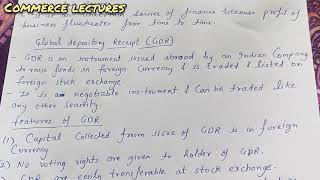 Commerce lectures
It is an uncertain source of finance because profit of
business fluctuates from time to time.
Global depository Receipt (GDR)
- GDR is an instrument issued abroad by an Indian Company
to raise funds in foreign Currency & is traded & listed on
foreign stock exchange
- It is a negotiable instrument & Can be traded like
any other Security
features of GDR
(1) Capital Collected from issue of GDR is in foreign
Currency
2) No voting rights are given to holder of GDR.
GDR are easily transferable at stock exchange-